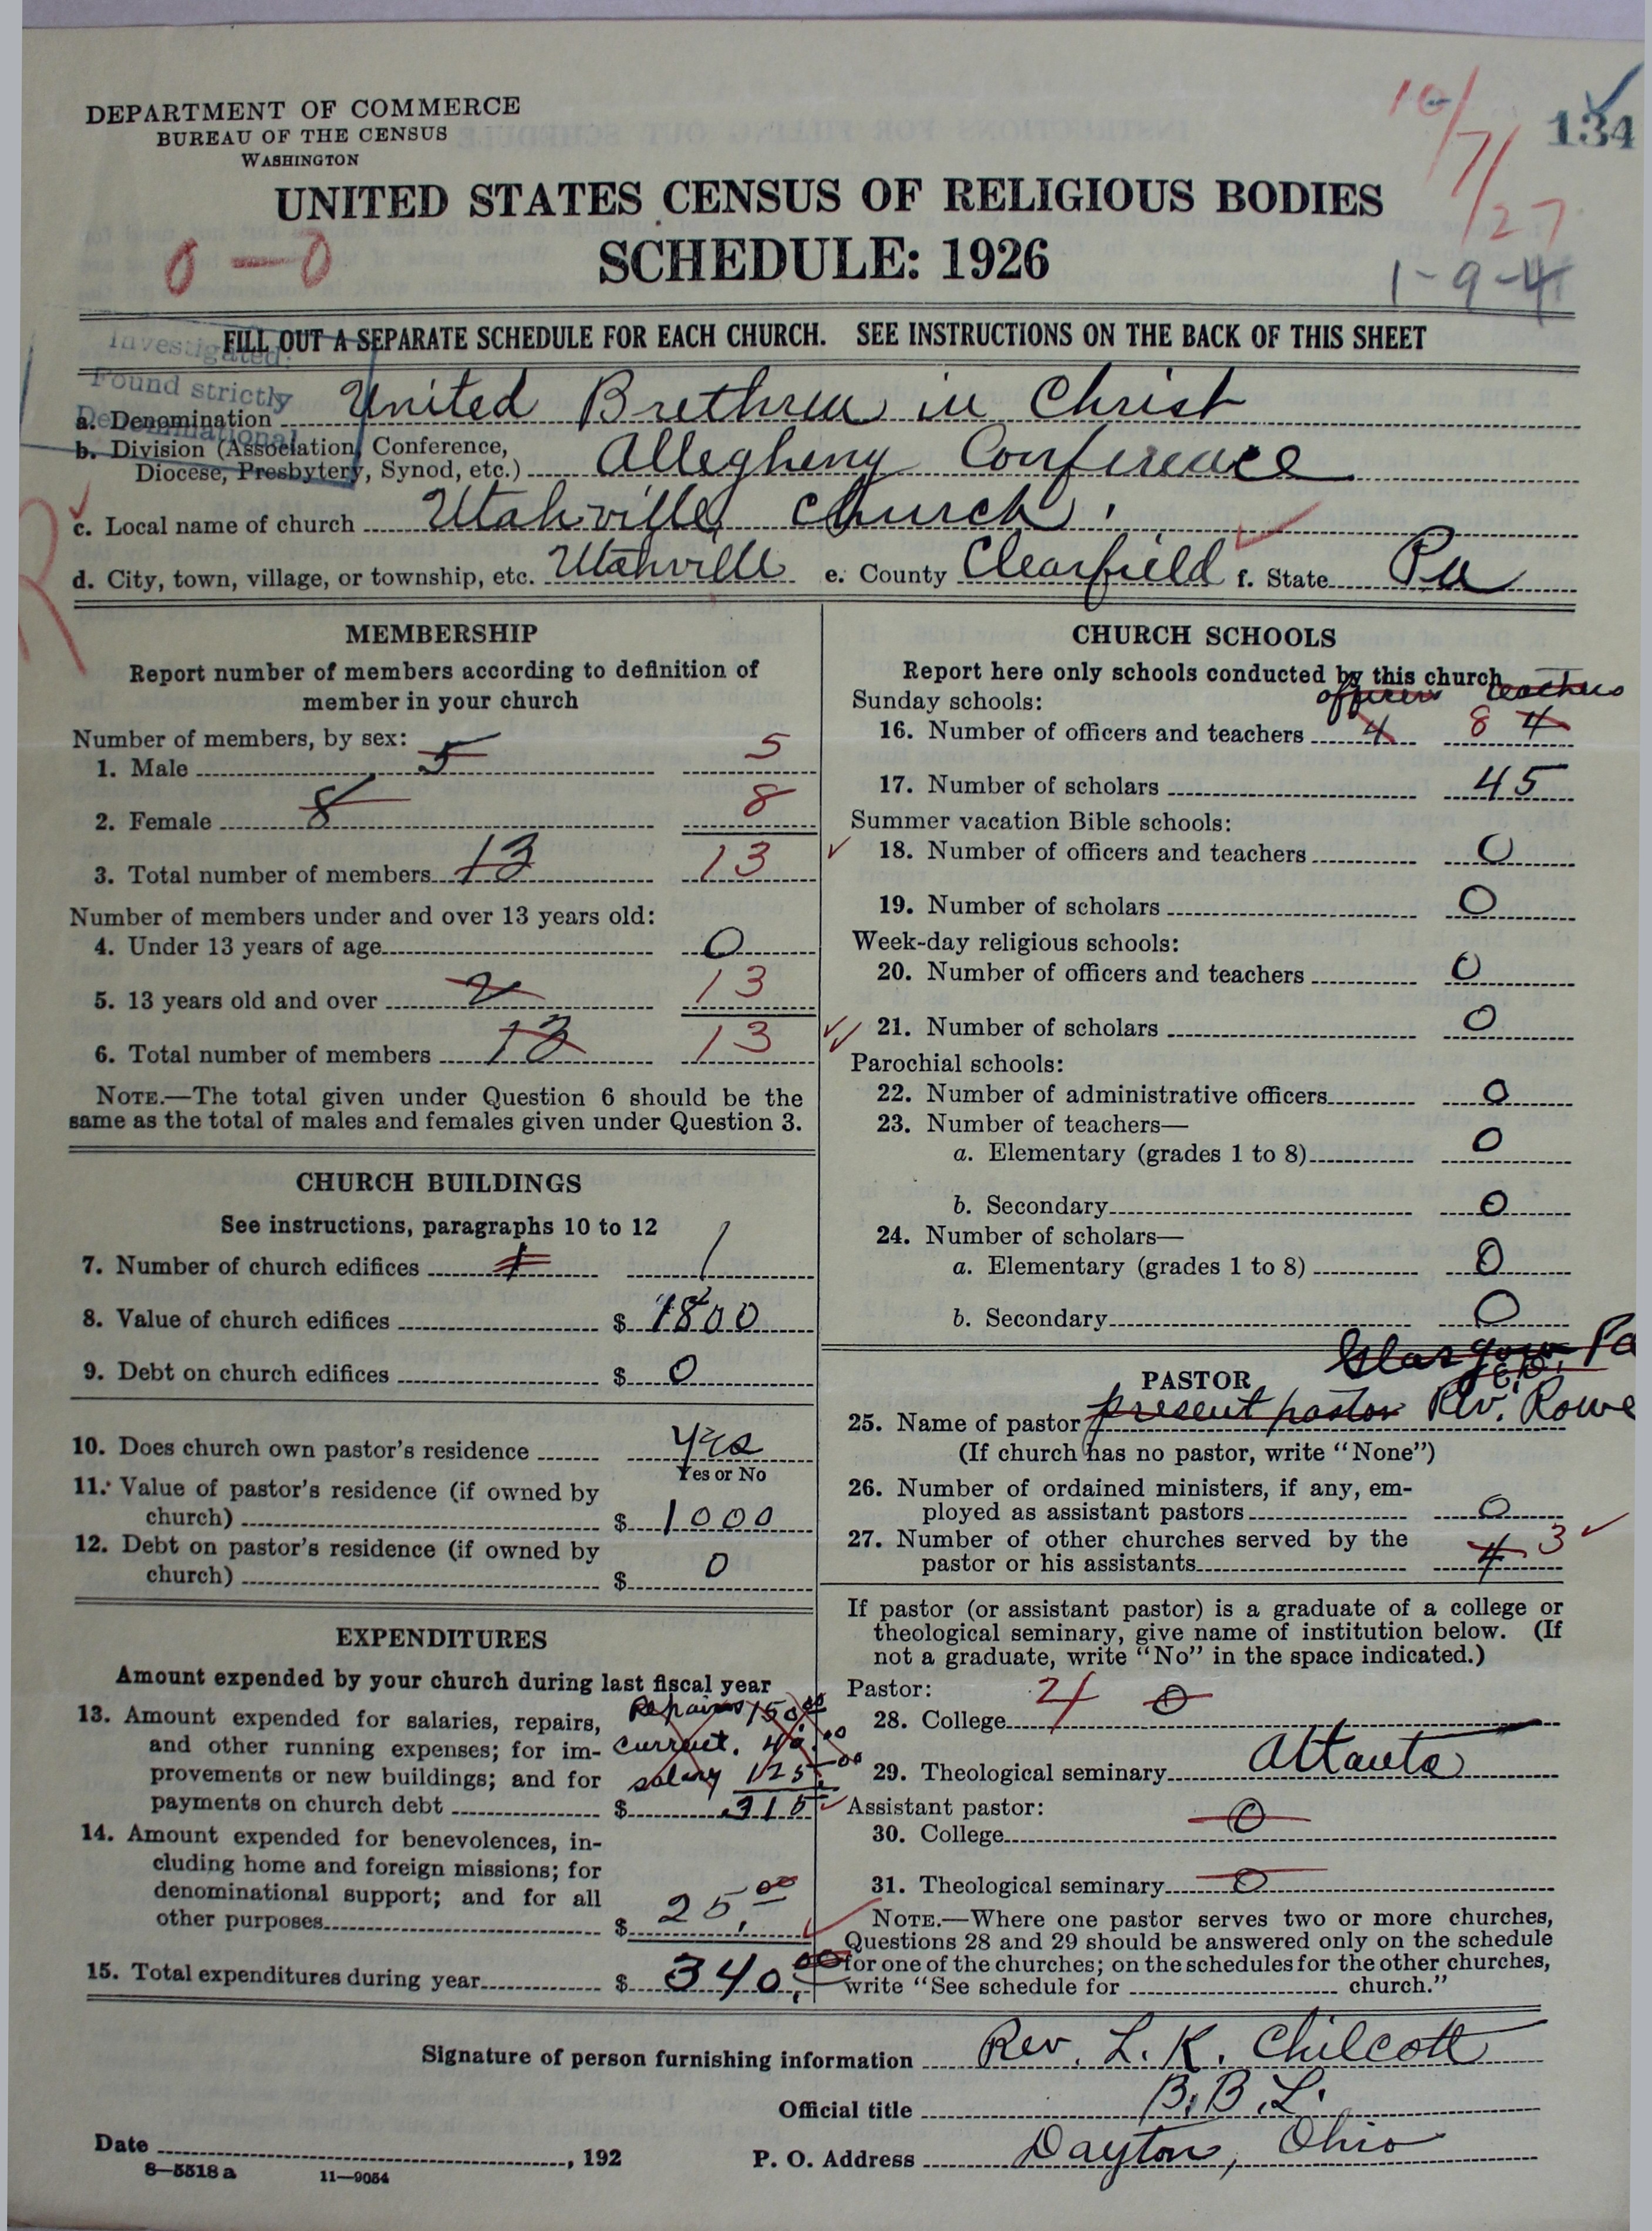 DEPARTMENT OF COMMERCE
BUREAU OF THE CENSUS
WASHINGTON
10/7/27
134
UNITED STATES CENSUS OF RELIGIOUS BODIES
SCHEDULE: 1926
0-0
1-9-4
FILL OUT A SEPARATE SCHEDULE FOR EACH CHURCH. SEE INSTRUCTIONS ON THE BACK OF THIS SHEET
Investigated.
Found strictly
Denominational
a. Denomination United Brethren in Christ
b. Division (Association, Conference,
Diocese, Presbytery, Synod, etc.) Allegheny Conference
R
c. Local name of church Utahville church.
d. City, town, village, or township, etc. Utahville e. County Clearfield f. State Pa
MEMBERSHIP
Report number of members according to definition of
member in your church
Number of members, by sex:
1. Male 5 5
2. Female 8 8
3. Total number of members 13 13
Number of members under and over 13 years old:
4. Under 13 years of age 0
5. 13 years old and over 2 13
6. Total number of members 13 13
NOTE.—The total given under Question 6 should be the
same as the total of males and females given under Question 3.
CHURCH BUILDINGS
See instructions, paragraphs 10 to 12
7. Number of church edifices 1 1
8. Value of church edifices $ 1800
9. Debt on church edifices $ 0
10. Does church own pastor's residence yes
Yes or No
11. Value of pastor's residence (if owned by
church) $ 1000
12. Debt on pastor's residence (if owned by
church) $ 0
EXPENDITURES
Amount expended by your church during last fiscal year
13. Amount expended for salaries, repairs, Repairs 150.00
and other running expenses; for im- current. 40.00
provements or new buildings; and for salary 125.00
payments on church debt $ 315
14. Amount expended for benevolences, in-
cluding home and foreign missions; for
denominational support; and for all
other purposes $ 25.00
15. Total expenditures during year $ 340.00
CHURCH SCHOOLS
Report here only schools conducted by this church
officers teachers
Sunday schools:
16. Number of officers and teachers 4 8 4
17. Number of scholars 45
Summer vacation Bible schools:
18. Number of officers and teachers 0
19. Number of scholars 0
Week-day religious schools:
20. Number of officers and teachers 0
21. Number of scholars 0
Parochial schools:
22. Number of administrative officers 0
23. Number of teachers—
a. Elementary (grades 1 to 8) 0
b. Secondary 0
24. Number of scholars—
a. Elementary (grades 1 to 8) 0
b. Secondary 0
Glasgow Pa
PASTOR
25. Name of pastor present pastor Rev. Rowe
(If church has no pastor, write "None")
26. Number of ordained ministers, if any, em-
ployed as assistant pastors 0
27. Number of other churches served by the
pastor or his assistants 4 3
If pastor (or assistant pastor) is a graduate of a college or
theological seminary, give name of institution below. (If
not a graduate, write "No" in the space indicated.)
Pastor:
28. College 0
29. Theological seminary Attauta
Assistant pastor:
30. College 0
31. Theological seminary 0
NOTE.—Where one pastor serves two or more churches,
Questions 28 and 29 should be answered only on the schedule
for one of the churches; on the schedules for the other churches,
write "See schedule for church."
Signature of person furnishing information Rev. L. K. Chilcott
Official title B. B. L.
Date , 192 P. O. Address Dayton, Ohio
8—5518 a 11—9054